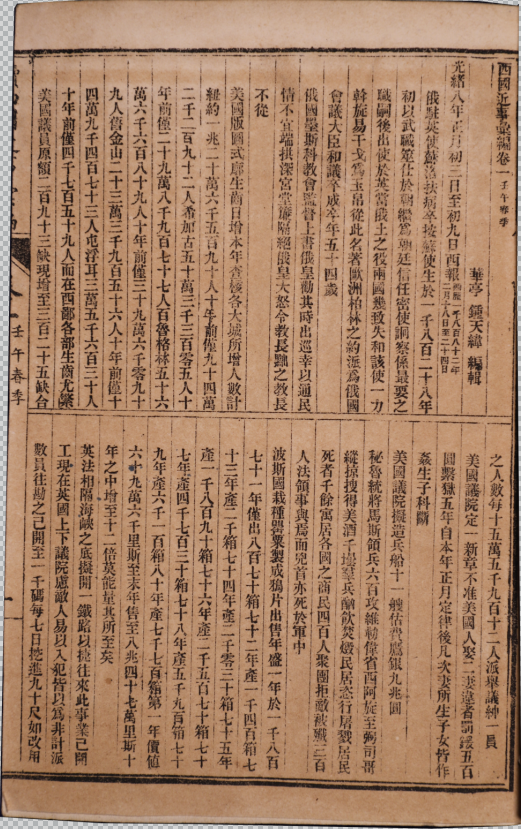 西國近事彙編卷一 壬午春季
華亭 鍾天緯 編輯
光緒八年正月初一日至初九日西報 西厯一千八百八十二年二月十八日至二十四日
俄駐英使 扶病卒按蘇使生於一千八百二十八年
初以武職筮仕於朝繼爲朝廷信任密使詗察係最要之
職嗣後出使於英當俄土之役兩國幾致失和該使一力
斡旋易干戈爲玉帛從此名著歐洲柏林之約派爲俄國
會議大臣和議卒成卒年五十四歲
俄國墨斯科教會監督上書俄皇勸其時出巡幸以通民
情不宜端拱深宮堂廉隔絕俄皇大怒令教長黜之教長
不從
美國版圖式廓生齒日增本年查核各大城所增人數計
紐約一兆二十萬六千五百九十人十年前僅九十四萬
二千二百九十二人希加古五十萬三千三百零五人十
年前僅二十九萬八千九百七十七人百魯格林五十六
萬六千六百八十九人十年前僅三十九萬六千零九十
九人舊金山二十三萬三千九百五十六人十年前僅十
四萬九千四百七十三人屯浮耳三萬五千六百三十人
十年前僅四千七百五十九人而在西鄙各部生齒尤繁
美國議員原額二百九十三缺現增至三百二十五缺合
壬午春季
之人數每十五萬五千九百十二人派舉議紳一員
美國議院定一新章不准美國人娶二妻違者罰鍰五百
圓繫獄五年自本年正月定律後凡次妻所生子女皆作
姦生子科斷
美國議院擬造兵船十一艘估費鷹銀九兆圓
秘魯統將馬斯領兵六百攻維勒偉省西阿旋至蜊司哥
縱掠搜得美酒千壜羣兵酗飲焚燬民居恣行屠戮居民
死者千餘寓居各國之商民四百人聚團拒敵被殲三百
人法領事與焉而兇首亦死於軍中
波斯國栽種罌粟製成鴉片出售年盛一年於一千八百
七十一年僅出八百七十箱七十二年產一千四百箱七
十三年產二千箱七十四年產二千零三十箱七十五年
產一千八百九十箱七十六年產二千五百七十箱七十
七年產四千七百三十箱七十八年產五千九百箱七十
九年產六千一百箱八十年產七千七百箱第一年價值
六十九萬六千里斯至末年售至八兆四十七萬里斯十
年之中增至十二倍莫能量其所至矣
英法相隔海峽之底擬開一鐵路以捷往來此事業已開
工現在英國上下議院慮敵人易以入犯皆以爲非計派
數員往勘之已開至一千碼每七日挖進九十尺如改用